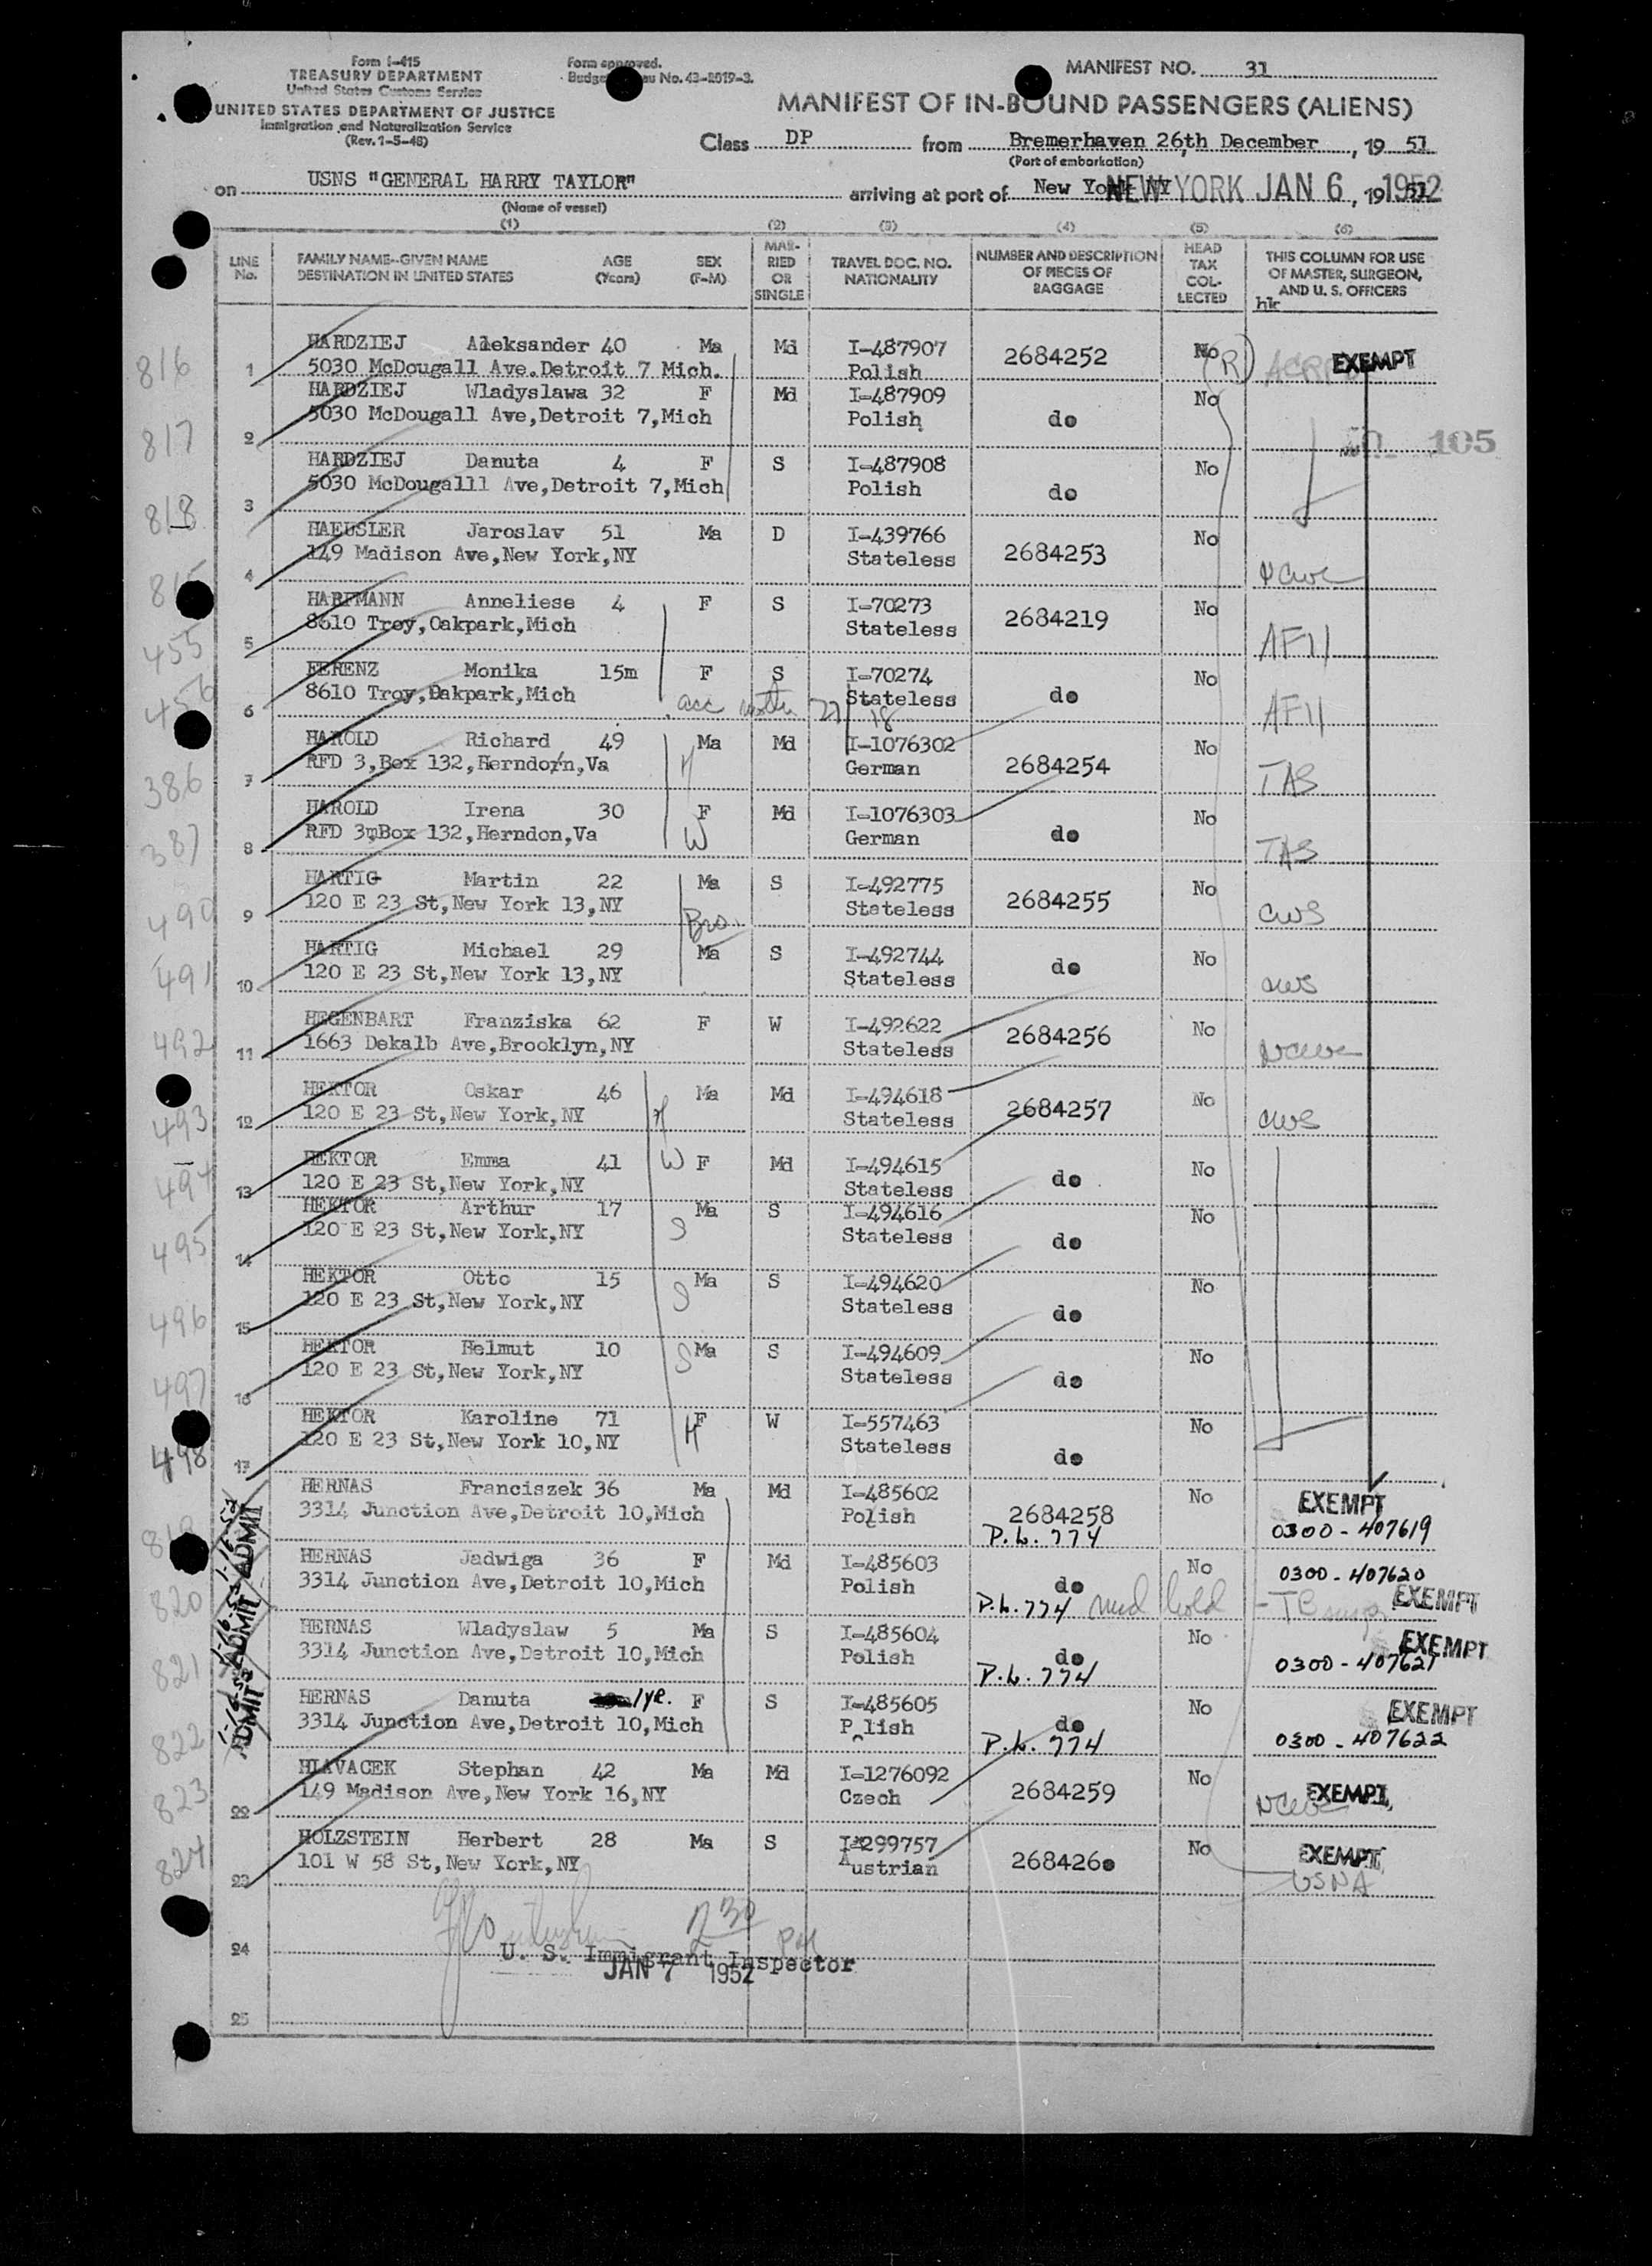 Form I-415
TREASURY DEPARTMENT
United States Customs Service
UNITED STATES DEPARTMENT OF JUSTICE
Immigration and Naturalization Service
(Rev. 1-5-48)
Form approved.
Budget Bureau No. 43-R019-3.
MANIFEST NO. 31
MANIFEST OF IN-BOUND PASSENGERS (ALIENS)
Class DP from Bremerhaven 26th December, 1951
(Port of embarkation)
on USNS "GENERAL HARRY TAYLOR" arriving at port of New York NY NEW YORK JAN 6 1952, 1951
(Name of vessel)
(1) (2) (3) (4) (5) (6)
LINE No. FAMILY NAME--GIVEN NAME DESTINATION IN UNITED STATES AGE (Years) SEX (F-M) MARRIED OR SINGLE TRAVEL DOC. NO. NATIONALITY NUMBER AND DESCRIPTION OF PIECES OF BAGGAGE HEAD TAX COLLECTED THIS COLUMN FOR USE OF MASTER, SURGEON, AND U. S. OFFICERS
hk
816 1 HARDZIEJ Aleksander 40 Ma Md I-487907 2684252 No (R) EXEMPT
5030 McDougall Ave.Detroit 7 Mich. Polish
817 2 HARDZIEJ Wladyslawa 32 F Md I-487909 do No
5030 McDougall Ave,Detroit 7,Mich Polish
105
818 3 HARDZIEJ Danuta 4 F S I-487908 do No
5030 McDougalll Ave,Detroit 7,Mich Polish
4 HAEUSLER Jaroslav 51 Ma D I-439766 2684253 No
149 Madison Ave,New York,NY Stateless
455 5 HARFMANN Anneliese 4 F S I-70273 2684219 No AFII
8610 Troy,Oakpark,Mich Stateless
456 6 FERENZ Monika 15m F S I-70274 do No AFII
8610 Troy,Oakpark,Mich Stateless
acc mother 27/18
386 7 HAROLD Richard 49 Ma Md I-1076302 2684254 No TAS
RFD 3,Box 132,Herndorn,Va H German
387 8 HAROLD Irena 30 F Md I-1076303 do No TAS
RFD 3mBox 132,Herndon,Va W German
490 9 HARTIG Martin 22 Ma S I-492775 2684255 No CWS
120 E 23 St,New York 13,NY Stateless
Bro.
491 10 HARTIG Michael 29 Ma S I-492744 do No CWS
120 E 23 St,New York 13,NY Stateless
492 11 HEGENBART Franziska 62 F W I-492622 2684256 No
1663 Dekalb Ave,Brooklyn,NY Stateless
493 12 HEKTOR Oskar 46 Ma Md I-494618 2684257 No CWS
120 E 23 St,New York,NY H Stateless
494 13 HEKTOR Emma 41 W F Md I-494615 do No
120 E 23 St,New York,NY Stateless
495 14 HEKTOR Arthur 17 Ma S I-494616 do No
120 E 23 St,New York,NY S Stateless
496 15 HEKTOR Otto 15 Ma S I-494620 do No
120 E 23 St,New York,NY S Stateless
497 16 HEKTOR Helmut 10 S Ma S I-494609 do No
120 E 23 St,New York,NY Stateless
498 17 HEKTOR Karoline 71 F W I-557463 do No
120 E 23 St,New York 10,NY Stateless
819 ADMIT 1-16-52 HERNAS Franciszek 36 Ma Md I-485602 2684258 No EXEMPT
3314 Junction Ave,Detroit 10,Mich Polish P.L. 774 0300-407619
820 ADMIT HERNAS Jadwiga 36 F Md I-485603 do No 0300-407620
3314 Junction Ave,Detroit 10,Mich Polish P.L. 774 med hold - TB EXEMPT
821 ADMIT HERNAS Wladyslaw 5 Ma S I-485604 do No EXEMPT
3314 Junction Ave,Detroit 10,Mich Polish P.L. 774 0300-407621
822 HERNAS Danuta 1yr. F S I-485605 do No EXEMPT
3314 Junction Ave,Detroit 10,Mich P lish P.L. 774 0300-407622
823 22 HLAVACEK Stephan 42 Ma Md I-1276092 2684259 No EXEMPT
149 Madison Ave,New York 16,NY Czech
824 23 HOLZSTEIN Herbert 28 Ma S I-299757 2684260 No EXEMPT
101 W 58 St,New York,NY Austrian USNA
24
2 30 PM
U. S. Immigrant Inspector
JAN 7 1952
25